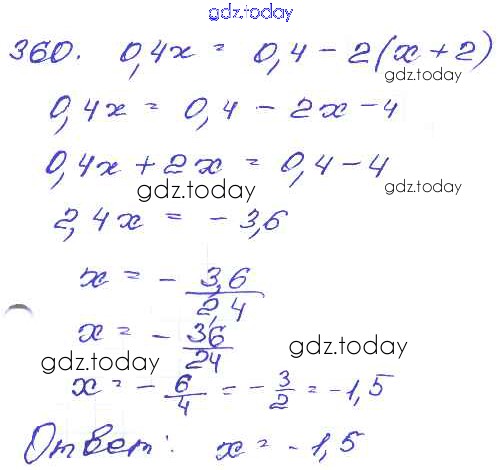 gdz.today
360. 0,4x = 0,4 - 2(x + 2)
gdz.today
0,4x = 0,4 - 2x - 4
0,4x + 2x = 0,4 - 4
gdz.today gdz.today
2,4x = - 3,6
x = - 3,6/2,4
x = - 36/24
gdz.today gdz.today
x = - 6/4 = - 3/2 = -1,5
Ответ: x = -1,5